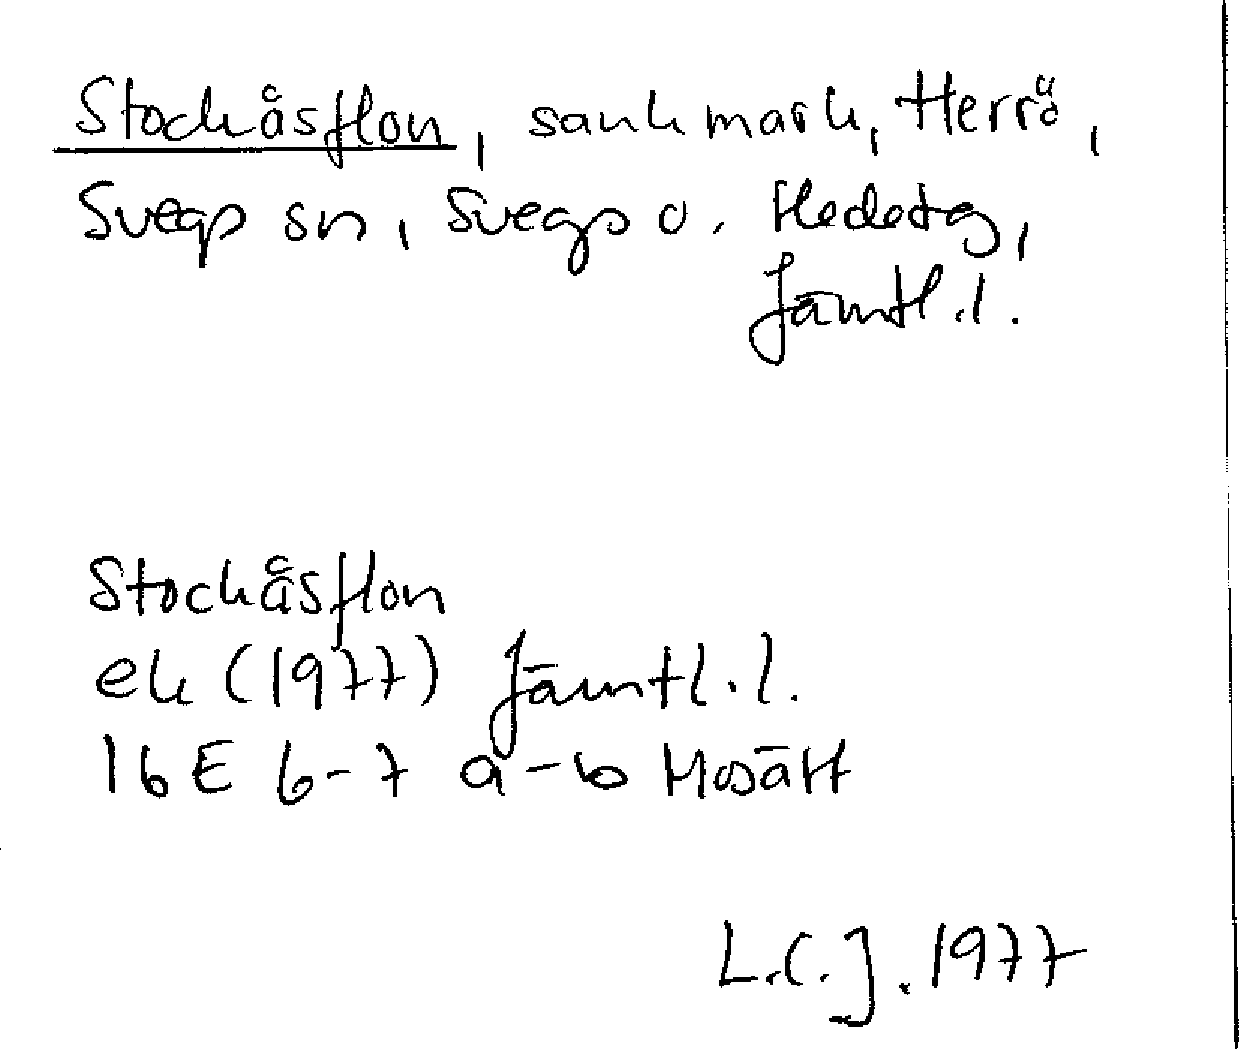 Stockåsflon, sankmark, Herrö,
Svegs sn, Svegs o. Hedetg,
Jämtl.l.
Stockåsflon
ek (1977) Jämtl.l.
16E 6-7 a-b Mosätt
L.C.J. 1977